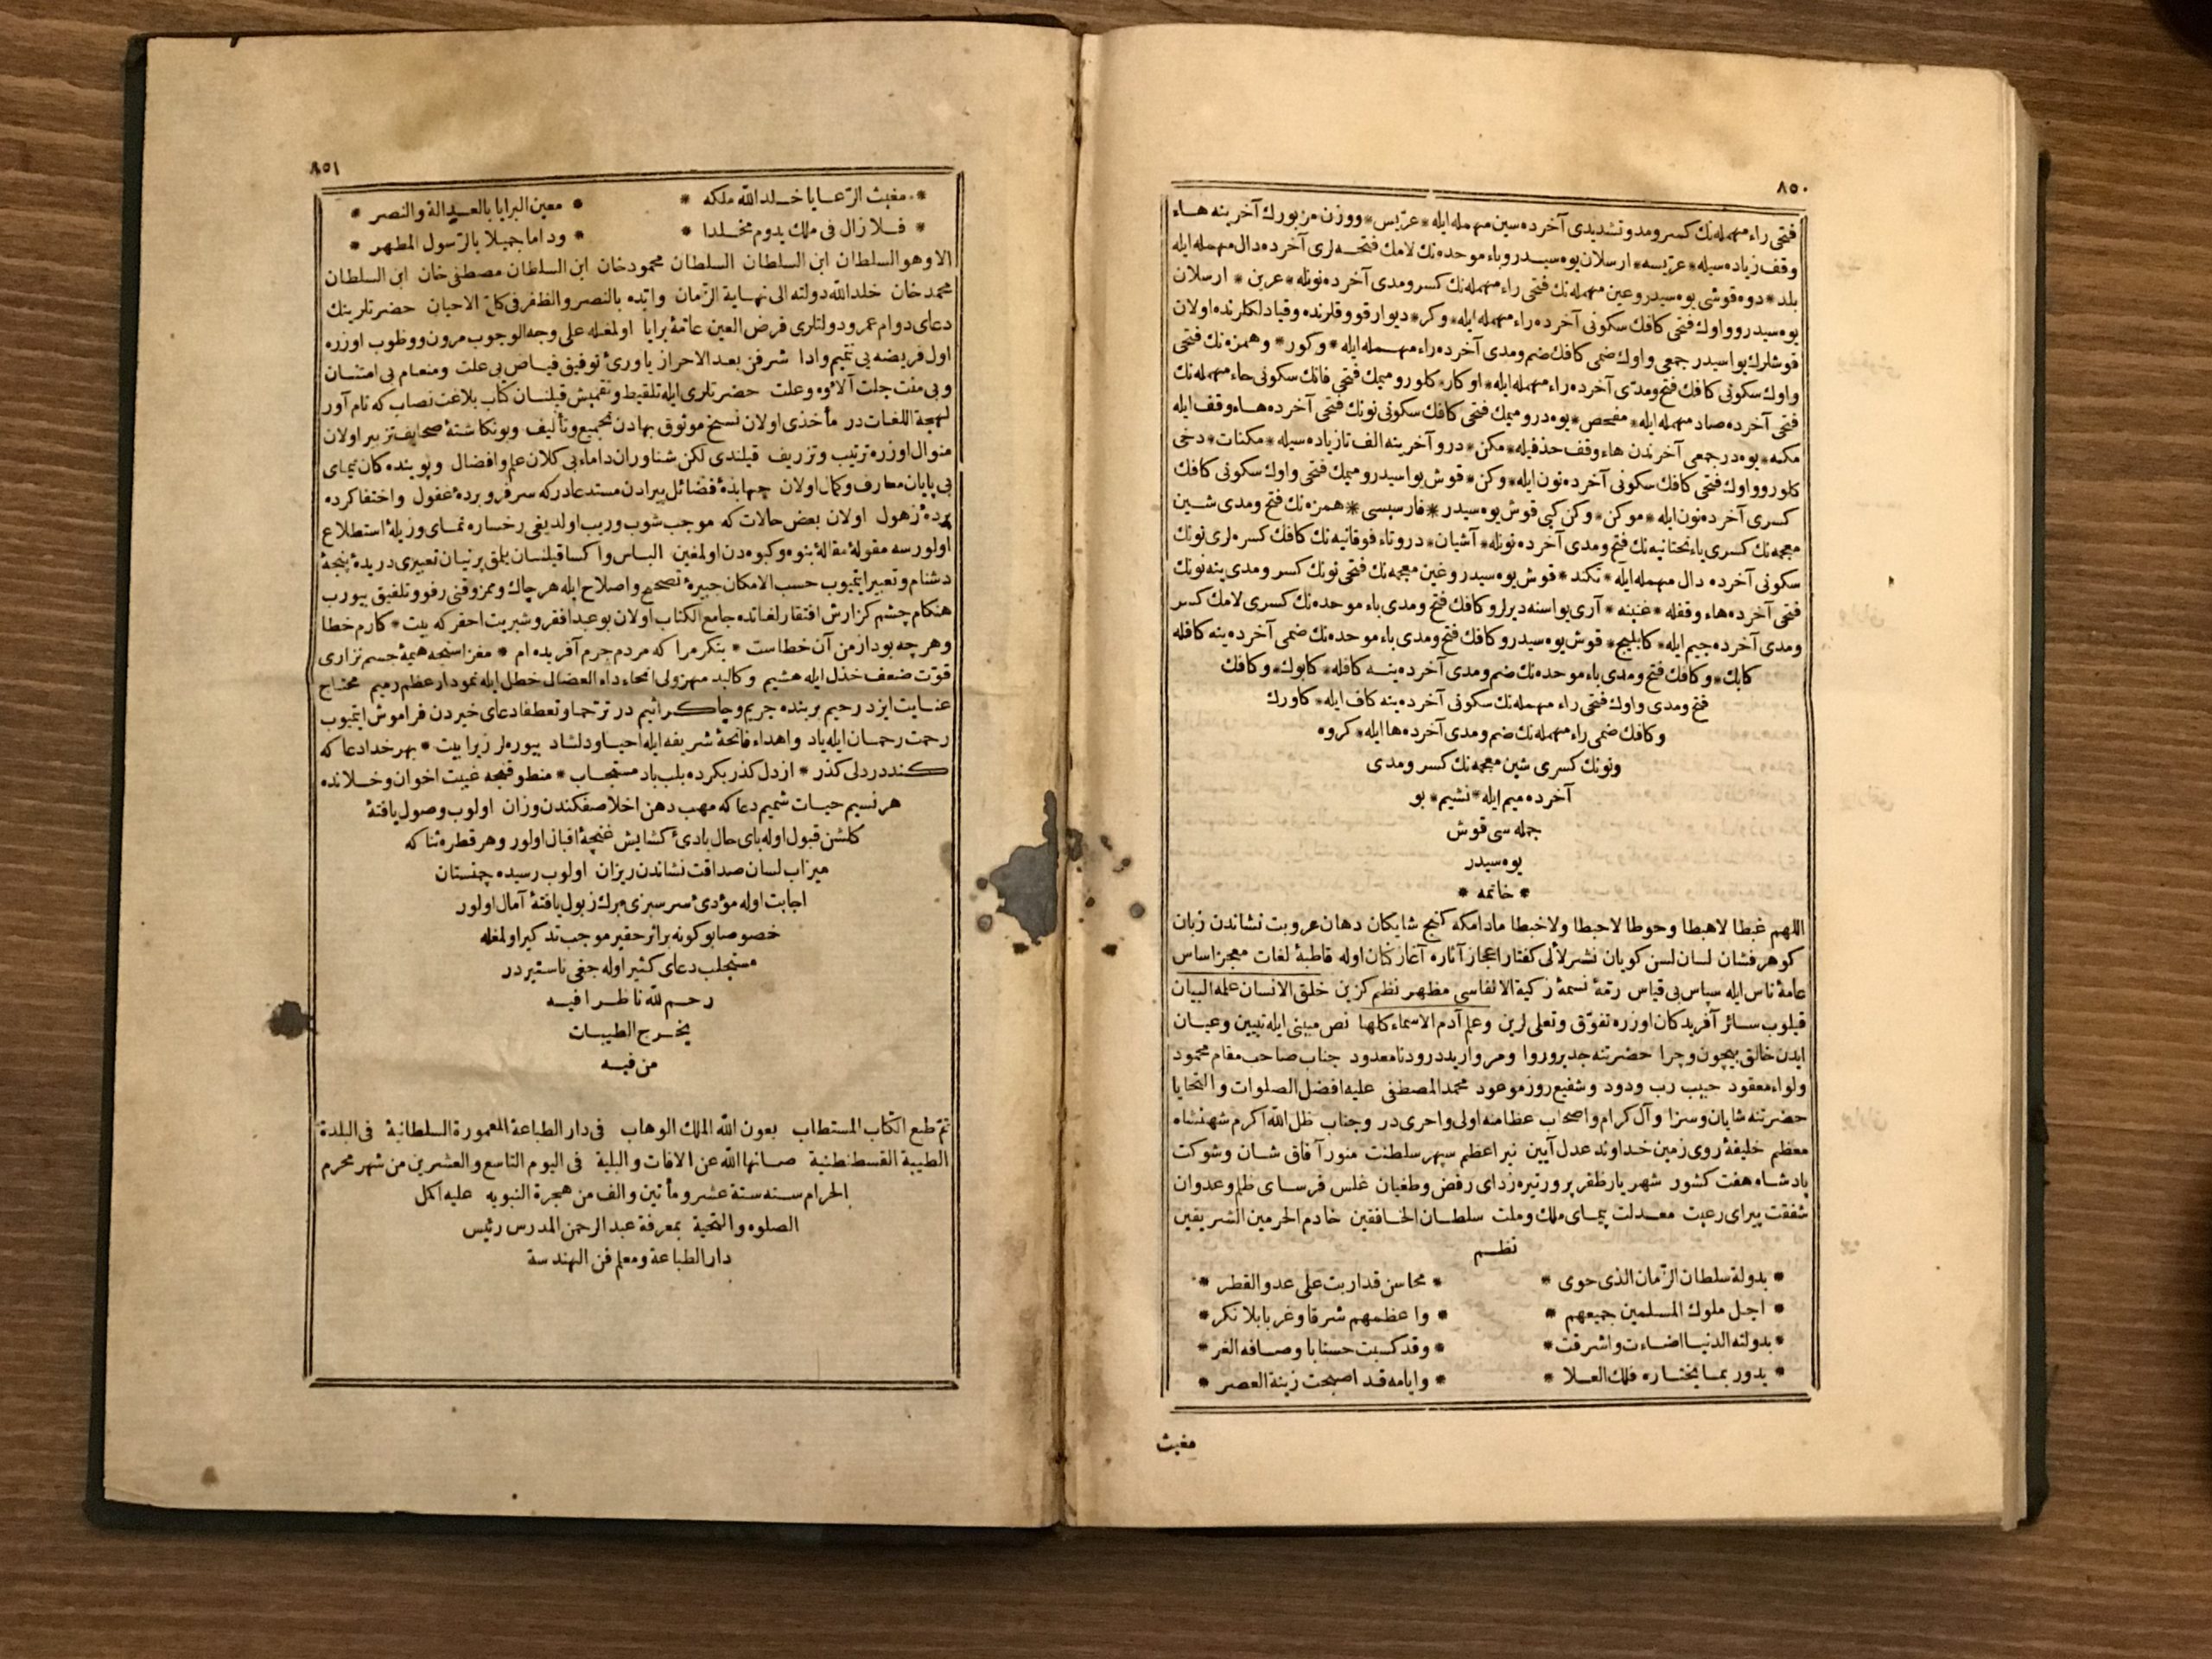 ٨٥٠
فتحى راء مهمله‌نك كسر ومد وتشديدى آخرده سين مهمله ايله * عرّيس * ووزن مزبورك آخرينه هاء
وقف زياده‌سيله * عرّيسه * ارسلان يوه‌سيدر وباء موحده‌نك لامك فتحه‌لرى آخرده دال مهمله ايله
بلد * دوه قوشى يوه‌سيدر وعين مهمله‌نك فتحى راء مهمله‌نك كسر ومدى آخرده نونله * عرين * ارسلان
يوه‌سيدر وواوك فتحى كافك سكونى آخرده راء مهمله ايله * وكر * ديوار قووقلرنده وقيادلكلرنده اولان
قوشلرك يواسيدر جمعى واوك ضمى كافك ضم ومدى آخرده راء مهمله ايله * وكور * وهمزه‌نك فتحى
واوك سكونى كافك فتح ومدّى آخرده راء مهمله ايله * اوكار * كلور وميمك فتحى فانك سكونى حاء مهمله‌نك
فتحى آخرده صاد مهمله ايله * مفحص * يوه‌در وميمك فتحى كافك سكونى نونك فتحى آخرده هاء وقف ايله
مكنه * يوه‌در جمعى آخرندن هاء وقف حذفيله * مكن * در و آخرينه الف تا زياده‌سيله * مكنات * دخى
كلور وواوك فتحى كافك سكونى آخرده نون ايله * وكن * قوش يواسيدر وميمك فتحى واوك سكونى كافك
كسرى آخرده نون ايله * موكن * وكن كبى قوش يوه‌سيدر * فارسيسى * همزه‌نك فتح ومدى شين
معجمه‌نك كسرى ياء تحتانيه‌نك فتح ومدى آخرده نونله * آشيان * در وتاء فوقانيه‌نك كافك كسره‌لرى نونك
سكونى آخرده دال مهمله ايله * تكند * قوش يوه‌سيدر وغين معجمه‌نك فتحى نونك كسر ومدى ينه نونك
فتحى آخرده هاء وقفله * غنينه * آرى يواسنه ديرلر وكافك فتح ومدى باء موحده‌نك كسرى لامك كسر
ومدى آخرده جيم ايله * كابليج * قوش يوه‌سيدر وكافك فتح ومدى باء موحده‌نك ضمى آخرده ينه كافله
كابك * وكافك فتح ومدى باء موحده‌نك ضم ومدى آخرده ينه كافله * كابوك * وكافك
فتح ومدى واوك فتحى راء مهمله‌نك سكونى آخرده ينه كاف ايله * كاورك
وكافك ضمى راء مهمله‌نك ضم ومدى آخرده ها ايله * كروه
ونونك كسرى شين معجمه‌نك كسر ومدى
آخرده ميم ايله * نشيم * بو
جمله سى قوش
يوه‌سيدر
* خاتمه *
اللهم غبطا لاهبطا وحوطا لاحبطا ولاخبطا مادامكه كنج شايكان دهان عروبت نشاندن زبان
كوهرفشان لسان لسن كويان نشر لآلى كفتار اعجاز آثاره آغاز كنان اوله قاطبهٔ لغات معجز اساس
عامهٔ ناس ايله سپاس بى قياس رقهٔ نسمهٔ زكية الانفاسى مظهر نظم كزين خلق الانسان علمه البيان
قيلوب سائر آفريدكان اوزره تفوّق وتعلى لرين وعلم آدم الاسماء كلها نص مبينى ايله تبيين وعيان
ايدن خالق بيچون وچرا حضرتنه جديروروا ومرواريد درود نامعدود جناب صاحب مقام محمود
ولواء معقود حبيب رب ودود وشفيع روز موعود محمد المصطفى عليه افضل الصلوات والتحايا
حضرتنه شايان وسزا وآل كرام واصحاب عظامنه اولى واحرى در وجناب ظل الله اكرم شهنشاه
معظم خليفهٔ روى زمين خداوند عدل آيين نير اعظم سپهر سلطنت منور آفاق شان وشوكت
پادشاه هفت كشور شهريار ظفرپرور تيره زداى رفض وطغيان غلس فرساى ظلم وعدوان
شفقت پيراى رعيت معدلت پيماى ملك وملت سلطان الخافقين خادم الحرمين الشريفين
نظم
* بدولة سلطان الزمان الذى حوى * * محاسن قد اربت على عدو القطر *
* اجل ملوك المسلمين جميعهم * * واعظمهم شرقا وغربا بلا نكر *
* بدولته الدنيا اضاءت واشرقت * * وقد كسبت حسنا باوصافه الغر *
* يدور بما يختاره فلك العلا * * وايامه قد اصبحت زينة العصر *
مغيث
٨٥١
* مغيث الرّعايا خلد الله ملكه * * معين البرايا بالعدالة والنصر *
* فلا زال فى ملك يدوم مخلدا * * وداما جميلا بالرّسول المطهر *
الا وهو السلطان ابن السلطان السلطان محمود خان ابن السلطان مصطفى خان ابن السلطان
محمد خان خلد الله دولته الى نهاية الزّمان وايّده بالنصر والظفر فى كل الاحيان حضرتلرينك
دعاى دوام عمر ودولتلرى فرض العين عامهٔ برايا اولمغله على وجه الوجوب مرون ووظوب اوزره
اول فريضه يى تتميم وادا شرفن بعد الاحراز ياورئ توفيق فياض بى علت ومنعام بى امتنان
وبى منت جلت آلاؤه وعلت حضرتلرى ايله تلقيط وتقميش قيلنان كتاب بلاغت نصاب كه نام آور
لهجة اللغات در مأخذى اولان نسخ موثوق بهادن تجميع وتأليف وبونكاشتهٔ صحايف تزبير اولان
منوال اوزره ترتيب وتزريف قيلندى لكن شناوران داماء بى كلان علم وافضال وپوينده كان تيماى
بى پايان معارف وكمال اولان جهابذهٔ فضائل پيرادن مستدعادركه سرفرو بردهٔ غفول واختفا كرده
پردهٔ زهول اولان بعض حالات كه موجب شوب وريب اولديغى رخساره نماى وزيلهٔ استطلاع
اولورسه مقولهٔ مقالهٔ بنوه وكبوه‌دن اولمغين الباس واكسا قيلنان يلمق پرنيان تعبيرى دريدهٔ پنجهٔ
دشنام وتعيير ايتميوب حسب الامكان جبيرهٔ تصحيح واصلاح ايله هر چاك وممزوقنى رفو وتلفيق بيورب
هنكام چشم كزارش افتقار لغاتده جامع الكتاب اولان بو عبد افقر وشبريت احقر كه بيت * كارم خطا
وهر چه بود از من آن خطاست * بنكر مرا كه مردم جرم آفريده ام * مغزاسنجه هيمهٔ جسم نزارى
قوّت ضعف خذل ايله هشيم وكالبد مهزولى انحاء داء العضال خطل ايله نمودار عظم رميم محتاج
عنايت ايزد رحيم بر بنده جريم وچاكر اثيم در ترحما وتعطفا دعاى خيردن فراموش ايتميوب
رحمت رحمان ايله ياد واهداء فاتحهٔ شريفه ايله احيا ودلشاد بيوره لر زيرا بيت * بهر خدا دعا كه
كند در دلى كذر * از دل كذر بكرده بلب باد مستجاب * منطوقنجه غيبت اخوان وخلانده
هر نسيم حيات شميم دعا كه مهب دهن اخلاصفكندن وزان اولوب وصول يافتهٔ
كلشن قبول اوله باى حال بادئ كشايش غنچهٔ اقبال اولور وهر قطره ثنا كه
ميزاب لسان صداقت نشاندن ريزان اولوب رسيده چمنستان
اجابت اوله مؤدئ سرسبزئ برك زبول يافتهٔ آمال اولور
خصوصا بو كونه براثر حقير موجب تذكير اولمغله
مستجلب دعاى كثير اوله جغى ناستيردر
رحم لله ناظرا فيه
يخرج الطيبات
من فيه
تمّ طبع الكتاب المستطاب بعون الله الملك الوهاب فى دار الطباعة المعمورة السلطانية فى البلدة
الطيبة القسطنطنية صانها الله عن الافات والبلية فى اليوم التاسع والعشرين من شهر محرم
الحرام سنه ستة عشر ومأتين والف من هجرة النبويه عليه اكمل
الصلوه والتحية بمعرفة عبد الرحمن المدرس رئيس
دار الطباعة ومعلم فن الهندسة